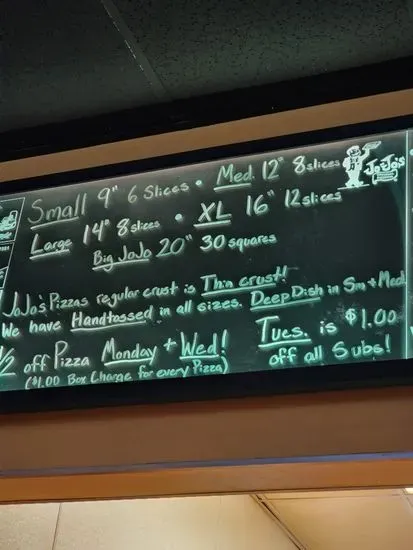 Small 9" 6 Slices • Med. 12" 8 slices
Large 14" 8 slices • XL 16" 12 slices
Big JoJo 20" 30 squares
JoJo's
JoJo's Pizzas regular crust is Thin crust!
We have Handtossed in all sizes. Deep Dish in Sm + Med
1/2 off Pizza Monday + Wed!
($1.00 Box Charge for every Pizza)
Tues. is $1.00
off all Subs!